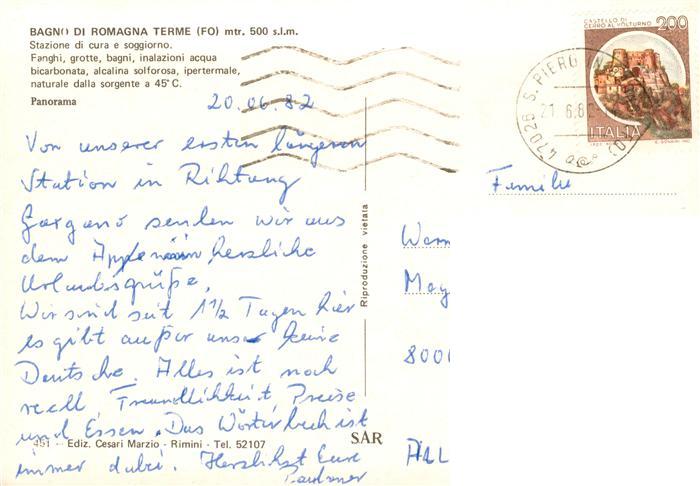 BAGNO DI ROMAGNA TERME (FO) mtr. 500 s.l.m.
Stazione di cura e soggiorno.
Fanghi, grotte, bagni, inalazioni acqua
bicarbonata, alcalina solforosa, ipertermale,
naturale dalla sorgente a 45° C.
Panorama
20.06.82
Von unserer ersten längeren
Station in Richtung
Gargano senden wir aus
dem Appenin herzliche
Urlaubsgrüße.
Wir sind seit 1 1/2 Tagen hier
es gibt außer uns keine
Deutsche. Alles ist noch
reell Freundlichkeit Preise
und Essen. Das Wörterbuch ist
immer dabei. Herzlichst Eure
491 - Ediz. Cesari Marzio - Rimini - Tel. 52107
SAR
Riproduzione vietata
CASTELLO DI
CERRO AL VOLTURNO
200
ITALIA
47026 S. PIERO IN
21 6.82
Familie
Wern
May
8001